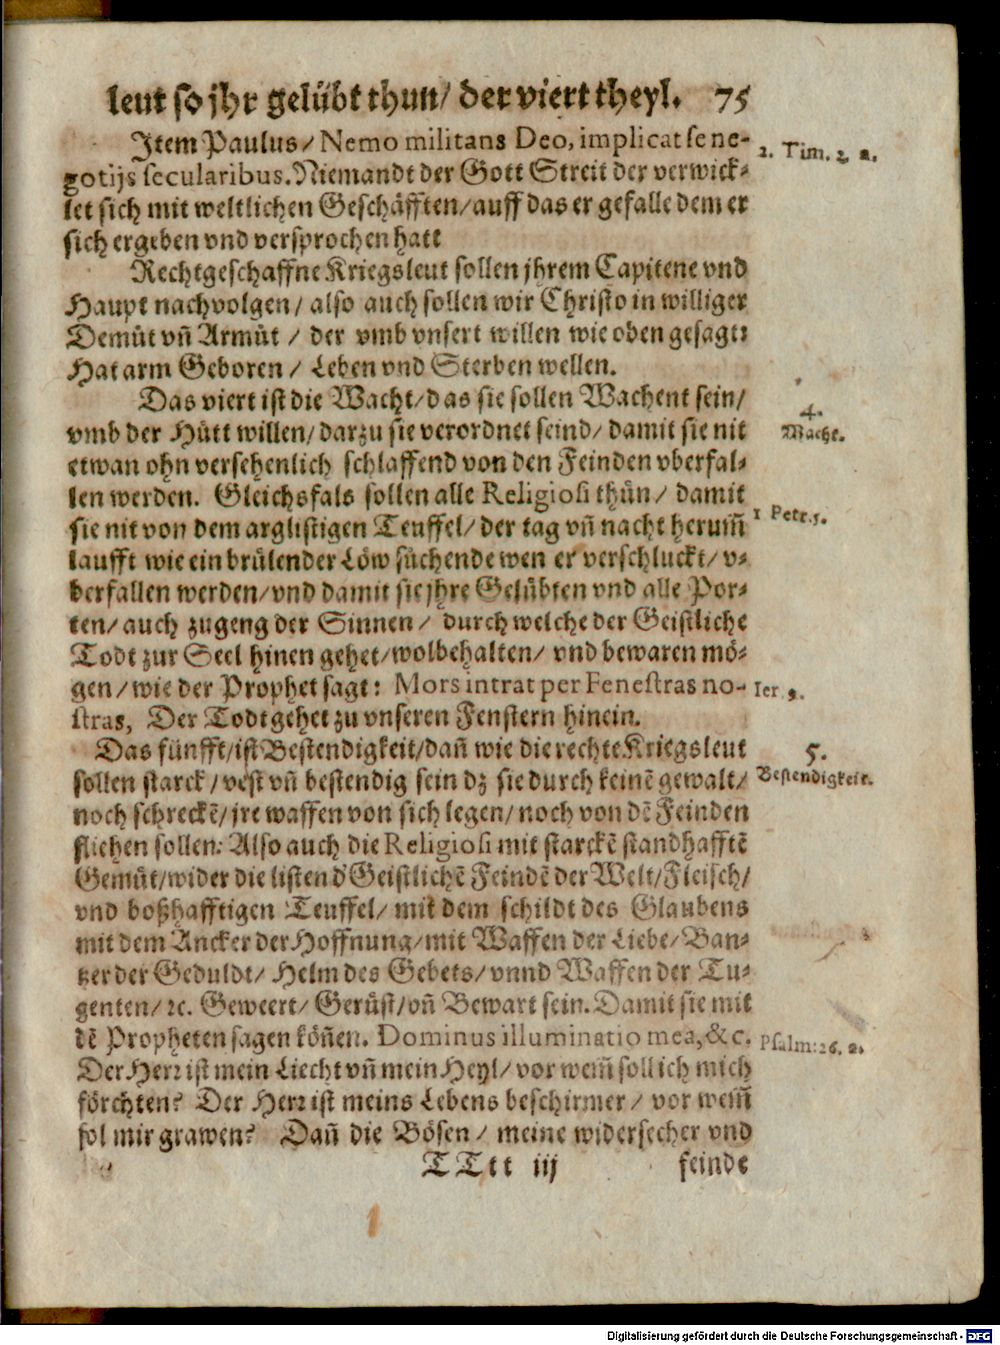 leut so jhr gelübt thun/ der viert theyl. 75
Item Paulus/ Nemo militans Deo, implicat se ne-
gotijs secularibus. Niemandt der Gott Streit der verwick-
let sich mit weltlichen Geschäfften/ auff das er gefalle dem er
sich ergeben vnd versprochen hatt
2. Tim. 2. a.
Rechtgeschaffne Kriegsleut sollen jhrem Capitene vnd
Haupt nachvolgen/ also auch sollen wir Christo in williger
Demůt vñ Armůt / der vmb vnsert willen wie oben gesagt:
Hat arm Geboren / Leben vnd Sterben wellen.
Das viert ist die Wacht/ das sie sollen Wachent sein/
vmb der Hütt willen/ darzu sie verordnet seind/ damit sie nit
etwan ohn versehenlich schlaffend von den Feinden vberfal-
len werden. Gleichsfals sollen alle Religiosi thůn/ damit
sie nit von dem arglistigen Teuffel/ der tag vñ nacht herum̃
laufft wie ein brülender Löw sůchende wen er verschluckt/ v-
berfallen werden/ vnd damit sie jhre Gelübten vnd alle Por-
ten/ auch zugeng der Sinnen / durch welche der Geistliche
Todt zur Seel hinen gehet/ wolbehalten/ vnd bewaren mö-
gen/ wie der Prophet sagt: Mors intrat per Fenestras no-
stras, Der Todt gehet zu vnseren Fenstern hinein.
4.
Wacht.
1 Petr. 5.
Ier. 9.
Das fünfft/ ist Bestendigkeit/ dañ wie die rechte Kriegsleut
sollen starck/ vest vñ bestendig sein dz sie durch keinē gewalt/
noch schreckē/ jre waffen von sich legen/ noch von dē Feinden
fliehen sollen: Also auch die Religiosi mit starckē standhafftē
Gemüt/ wider die listen d' Geistlichē Feindē der Welt/ Fleisch/
vnd boßhafftigen Teuffel/ mit dem schildt des Glaubens
mit dem Ancker der Hoffnung/ mit Waffen der Liebe/ Ban-
tzer der Geduldt/ Helm des Gebets/ vnnd Waffen der Tu-
genten/ ꝛc. Geweert/ Gerüst/ vñ Bewart sein. Damit sie mit
dē Propheten sagen köñen. Dominus illuminatio mea, &c.
Der Herr ist mein Liecht vñ mein Heyl/ vor wem̃ soll ich mich
förchten? Der Herr ist meins Lebens beschirmer / vor wem̃
sol mir grawen? Dañ die Bösen / meine widersecher vnd
5.
Bestendigkeit.
Psalm: 26. a.
TTtt iij feinde
Digitalisierung gefördert durch die Deutsche Forschungsgemeinschaft - DFG